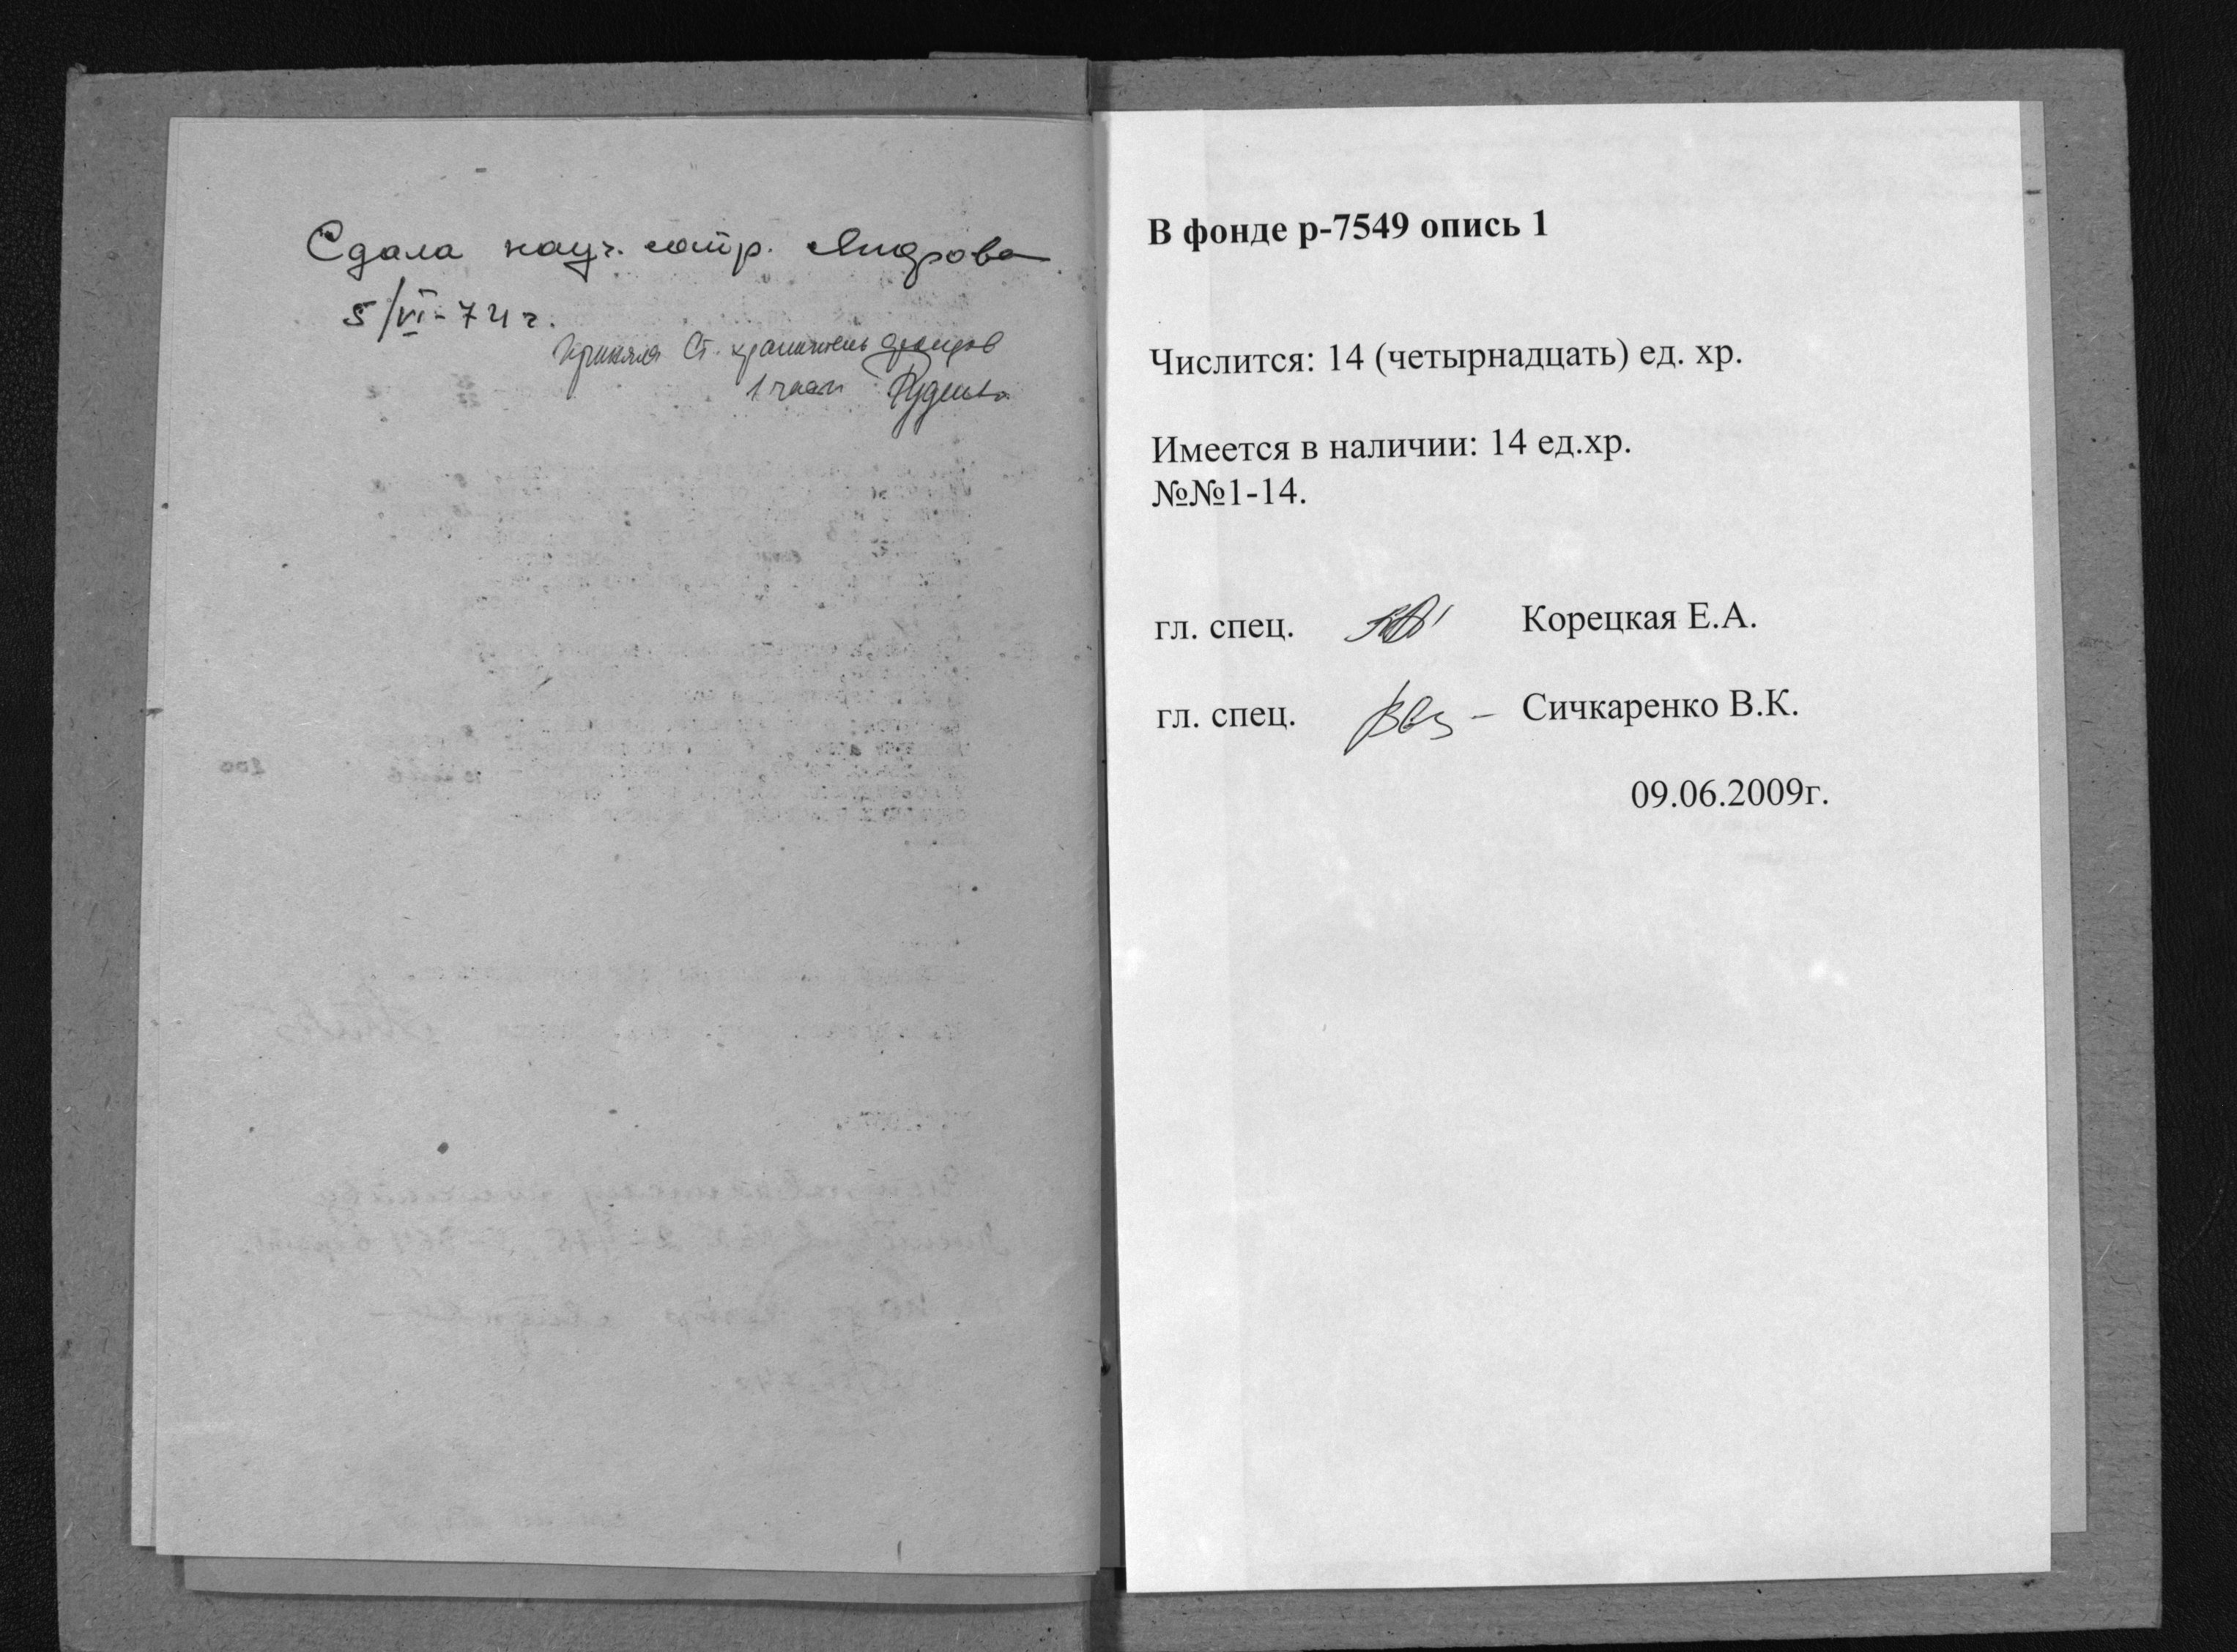 Сдала науч. сотр.
5/VI-74 г.
Приняла Ст. хранитель фондов
1 части
В фонде р-7549 опись 1
Числится: 14 (четырнадцать) ед. хр.
Имеется в наличии: 14 ед.хр.
№№1-14.
гл. спец. Корецкая Е.А.
гл. спец. Сичкаренко В.К.
09.06.2009г.